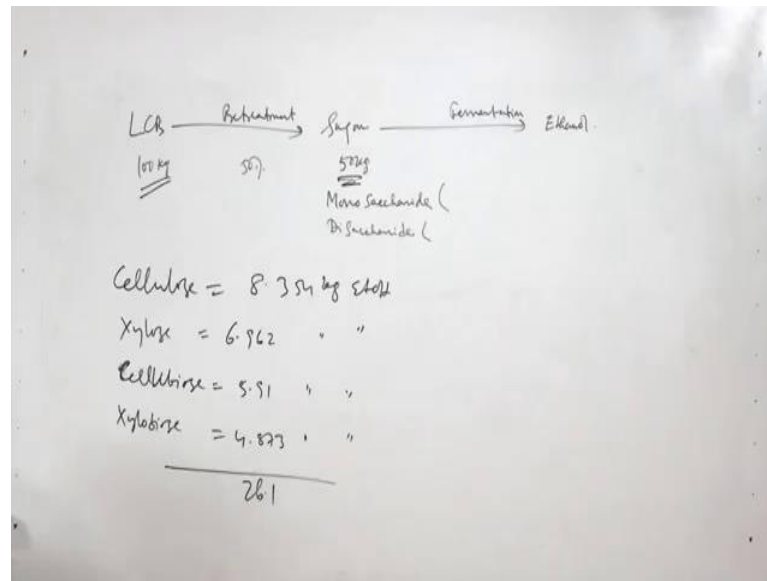 LCB Pretreatment Sugar Fermentation Ethanol.
100 kg 50%. 50kg
Mono Saccharide (
Di Saccharide (
Cellulose = 8.354 kg EtoH
Xylose = 6.962 " "
Cellibiose = 5.91 " "
Xylobiose = 4.873 " "
26.1